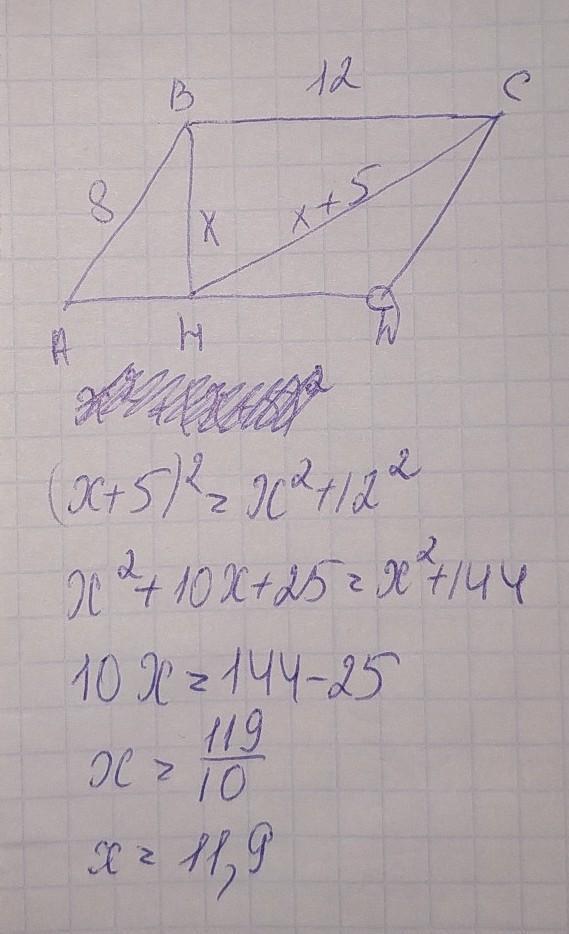 12
B
C
8
x
x+5
A
H
D
(x+5)²=x²+12²
x²+10x+25=x²+144
10x=144-25
x=119/10
x=11,9